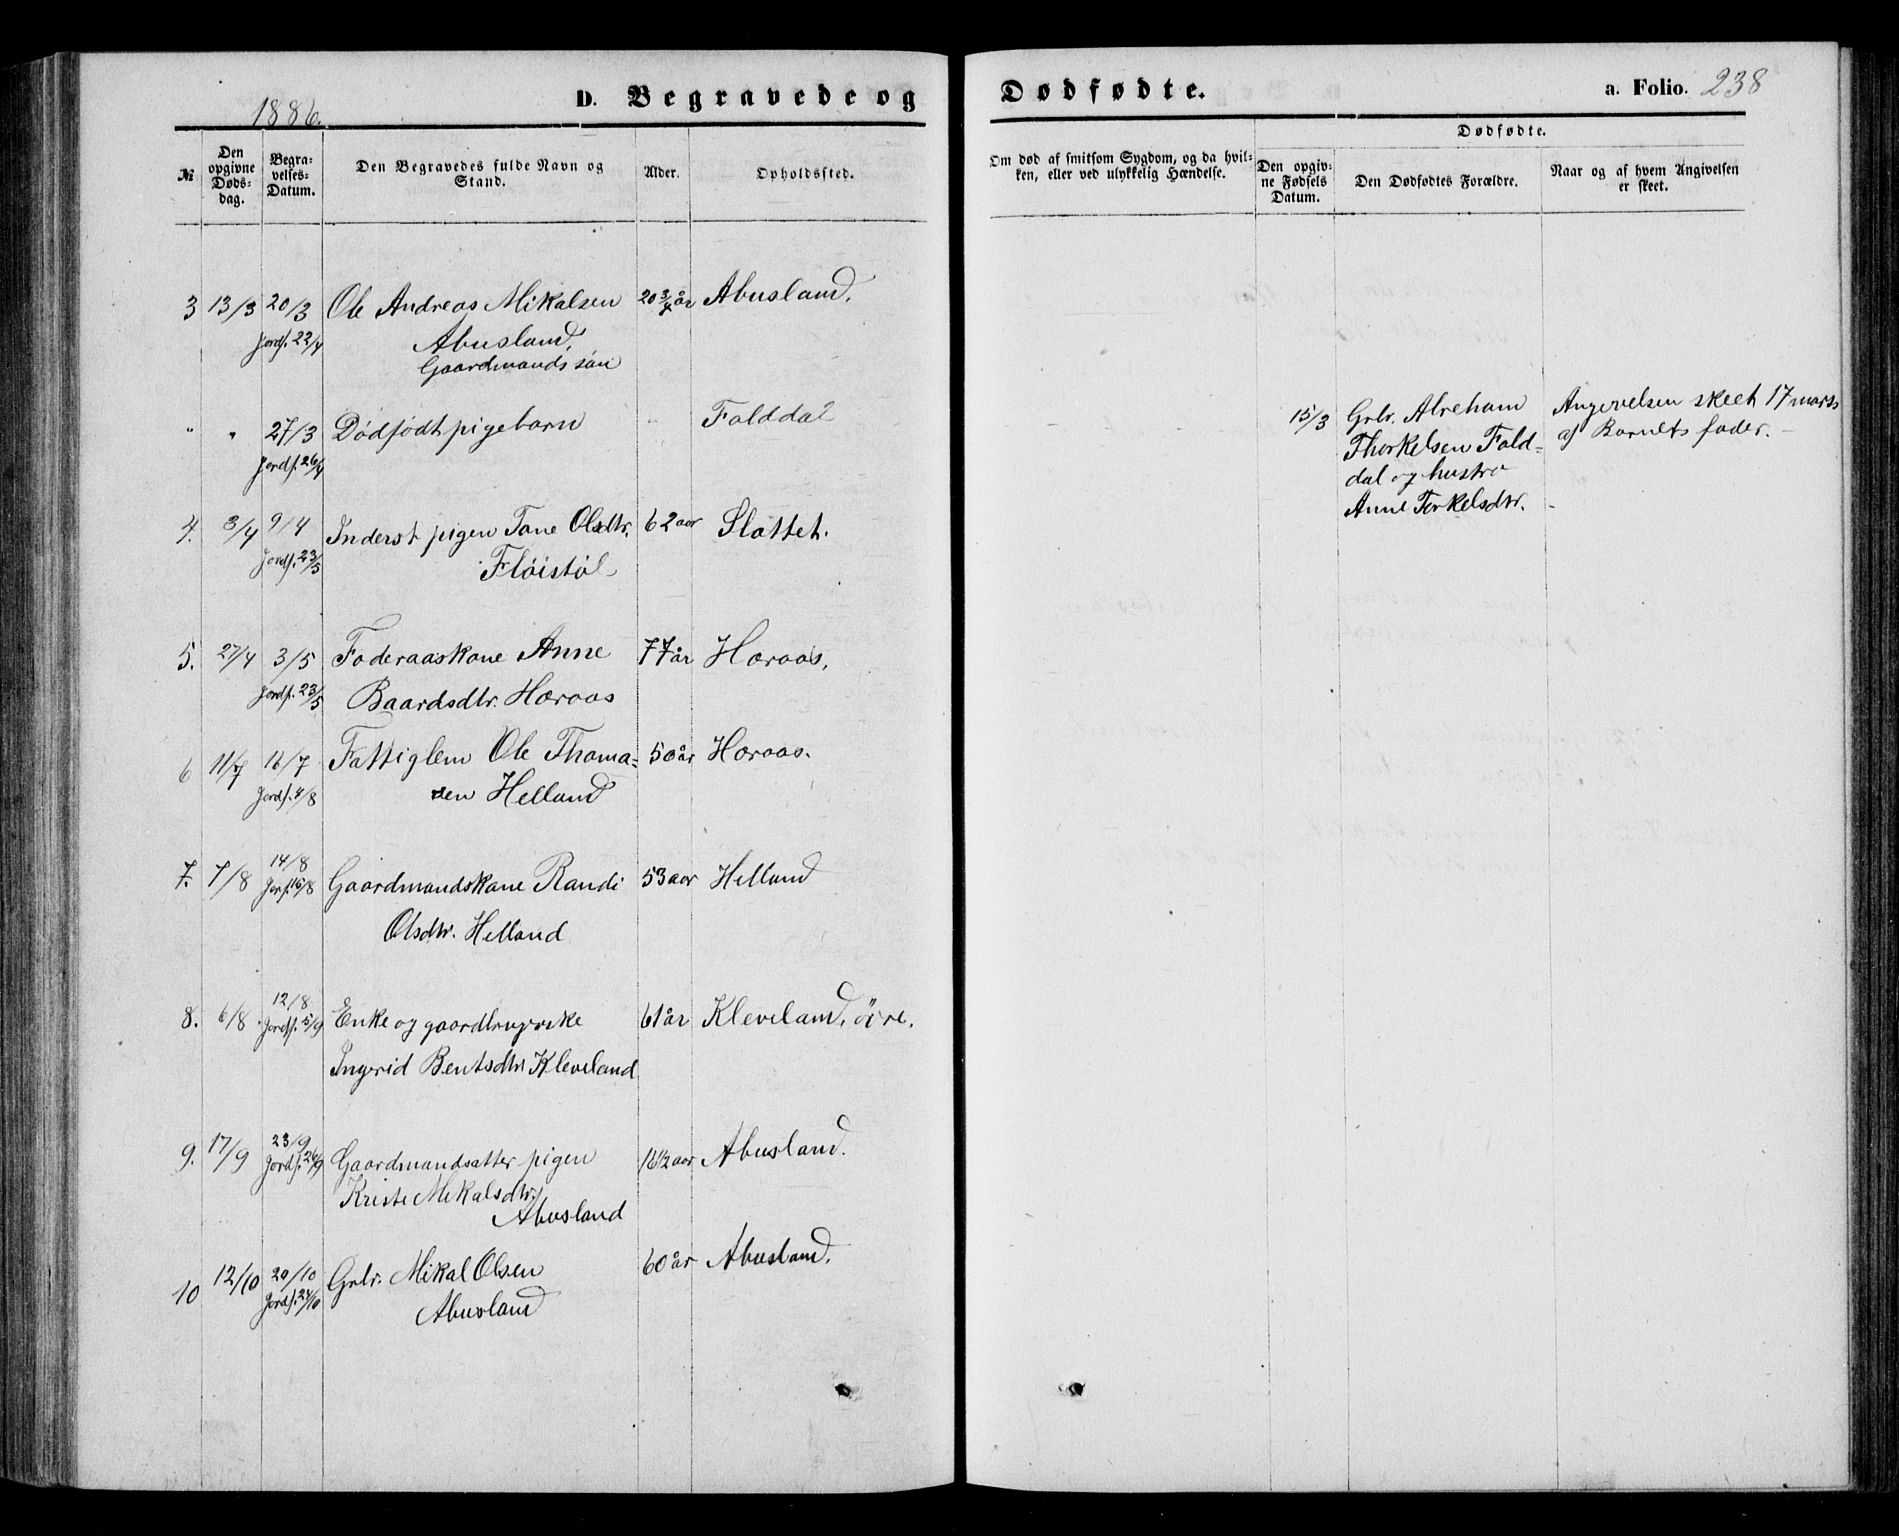 1886.
D. Begravede og
Dødfødte.
a. Folio. 238
№
Den opgivne Døds-dag.
Begra-velses-Datum.
Den Begravedes fulde Navn og Stand.
Alder.
Opholdssted.
Om død af smitsom Sygdom, og da hvil-ken, eller ved ulykkelig Hændelse.
Dødfødte.
Den opgiv-ne Fødsels Datum.
Den Dødfødtes Forældre.
Naar og af hvem Angivelsen er skeet.
3 13/3 20/3 Ole Andreas Mikalsen 20 3/4 år Abusland.
Jordf. 22/4 Abusland,
Gaardmands søn
" " 27/3 Dødfødt pigebarn " Folddal 15/3 Grbr. Abreham Angivelsen skeet 17 marts
Jordf. 26/4 Thorkelsen Fold= af Barnets fader.
dal og hustro
Anne Torkelsdtr.
4. 3/4 9/4 Inderst pigen Tone Olsdtr. 62 aar Slottet.
Jordf. 23/5 Fløistøl
5. 27/4 3/5 Foderaaskone Anne 77 år Horaas.
Jordf. 23/5 Baardsdtr. Horaas
6 11/7 16/7 Fattiglem Ole Thoma= 50 år Horaas.
Jordf. 4/8 sen Helland
7. 7/8 14/8 Gaardmandskone Randi 53 aar Helland
Jorf. 15/8 Olsdtr. Helland
8. 6/8 12/8 Enke og gaardbrugerske 61 år Kleveland, øvre.
Jordf. 5/9 Ingerid Bentsdtr. Kleveland
9. 17/9 23/9 Gaardmandsatter pigen 16 1/2 aar Abusland.
Jordf. 26/9 Kriste Mikalsdtr.
Abusland
10 12/10 20/10 Grbr. Mikal Olsen 60 år Abusland.
Jordf. 24/10 Abusland